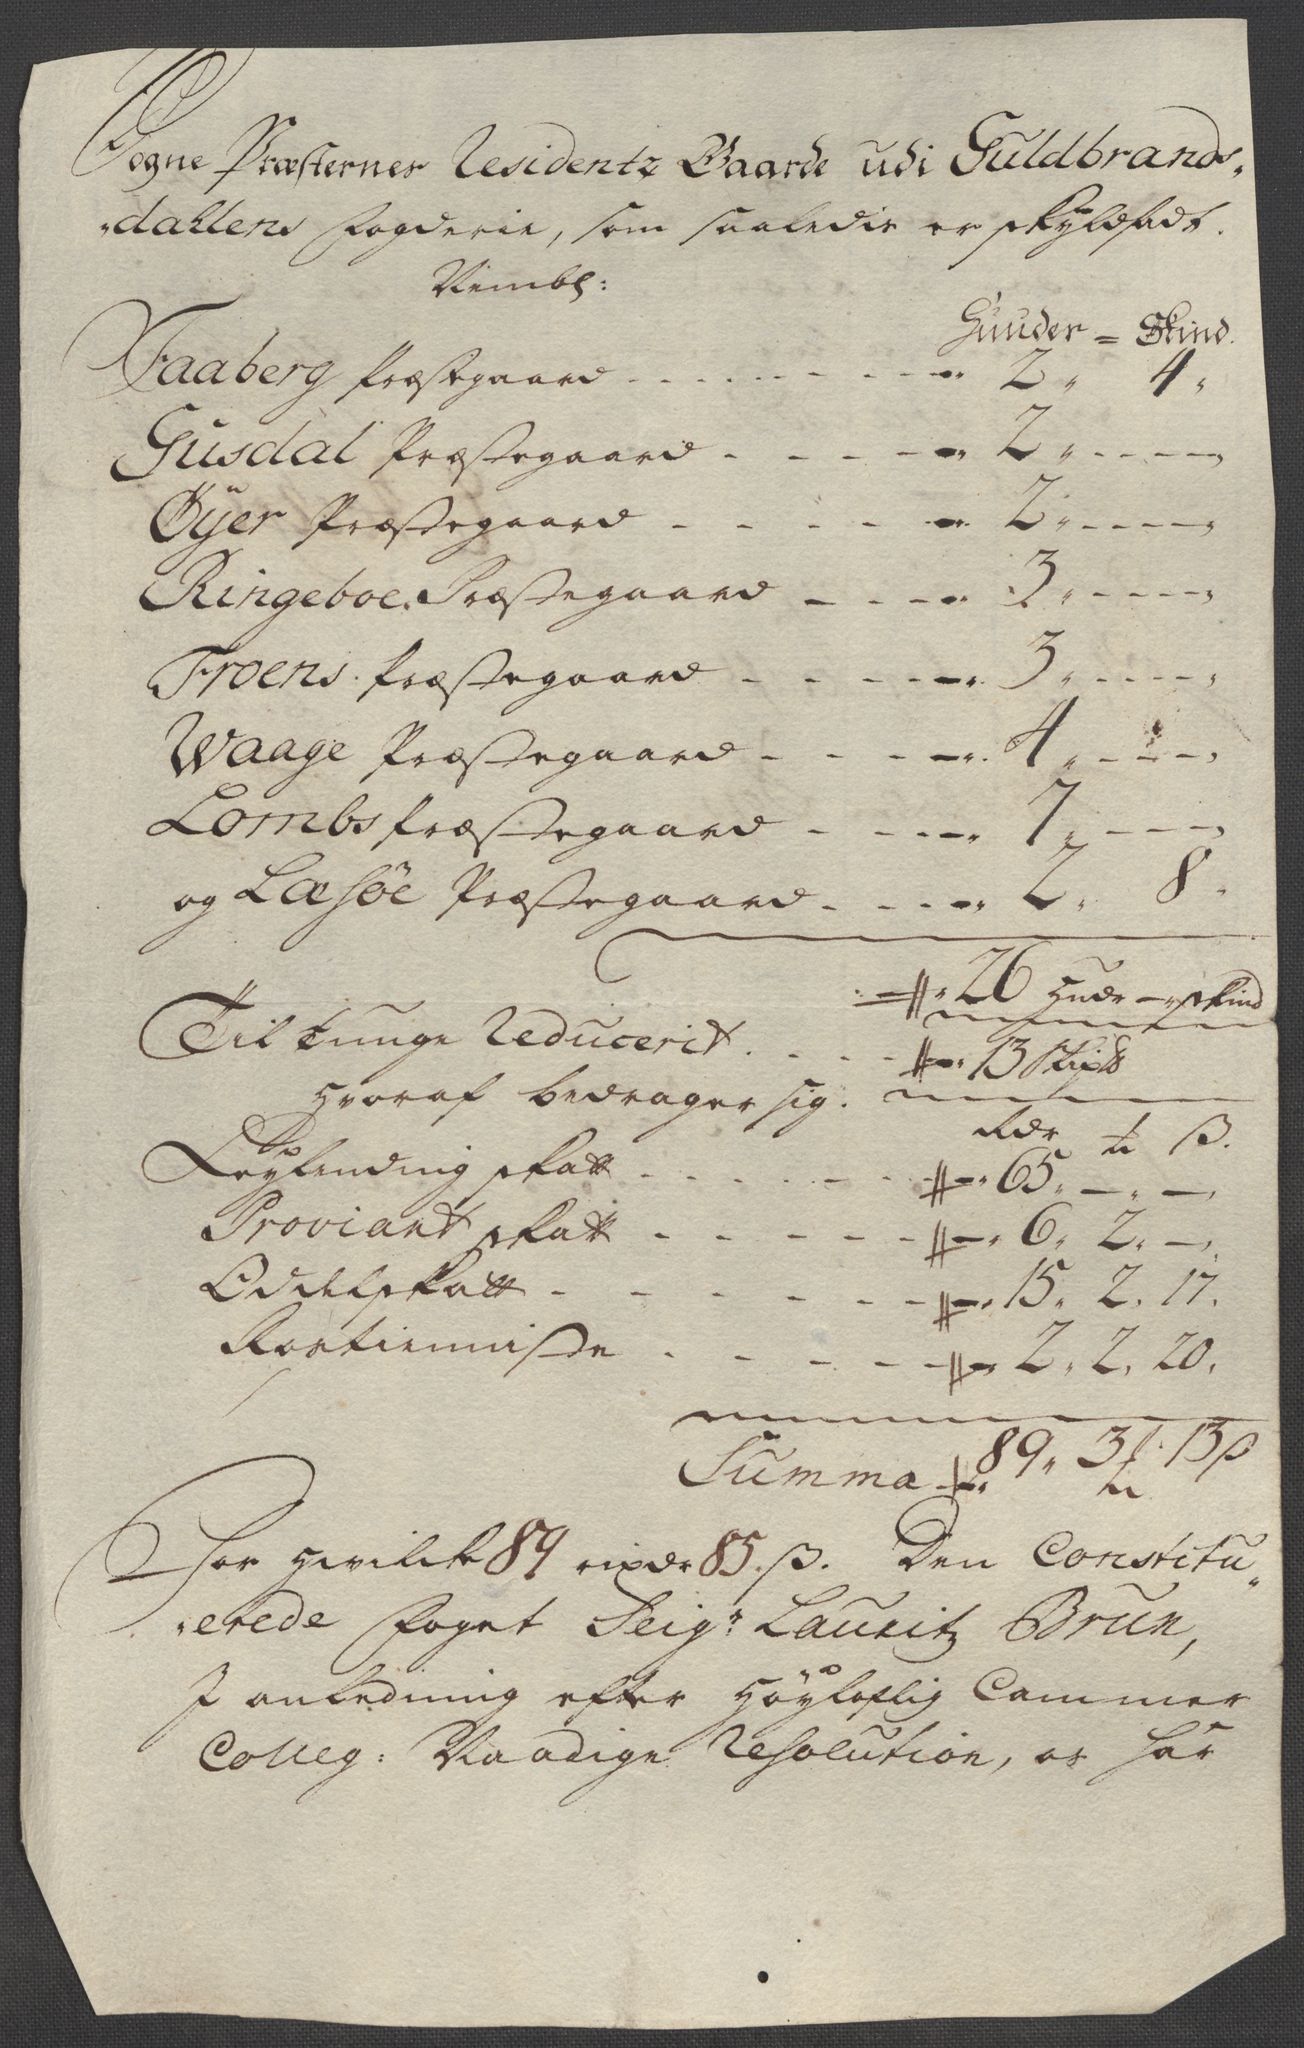 Sogne Præsternes Residentz Gaarde udi Guldbrands-
dahlens fogderie, som saaledis er skyldsadt.
Nembl:
Huuder = Skind.
Faaberg Præstegaard . . . . . . . . 2, 4,
Gusdal Præstegaard . - - - - 2, - - - -,
Øÿer Præstegaard - - - - - 2, - - - -,
Ringeboe Præstegaard - - - - 3, - - - -,
Froens Præstegaard - - - - - 3, - - - -,
Waage Præstegaard - - - - - 4, - - - -,
Lombs Præstegaard - - - - 7, - - - -,
og Læsøe Præstegaard - - - - 2, 8,
26 Hudr — Skind
Til tunge Reducerit . - - - 13 Skip℔
Hvoraf bedrager sig.
Rdr ℔ ß.
Leylending skatt . . . . . . 65, —, —,
Proviant skatt . - - - - 6, 2, —,
Oddelskatt - - - - - - 15, 2, 17,
Rostienniste . - - - - 2, 2, 20,
Summa 89, 3 ℔ 13 ß
For hvilche 89 rixdr 85 ß. Den Constitu-
erede foget Seigr: Lauritz Brun,
I anledning efter Høyloflig Cammer
Colleg: Naadige Resolution, os har